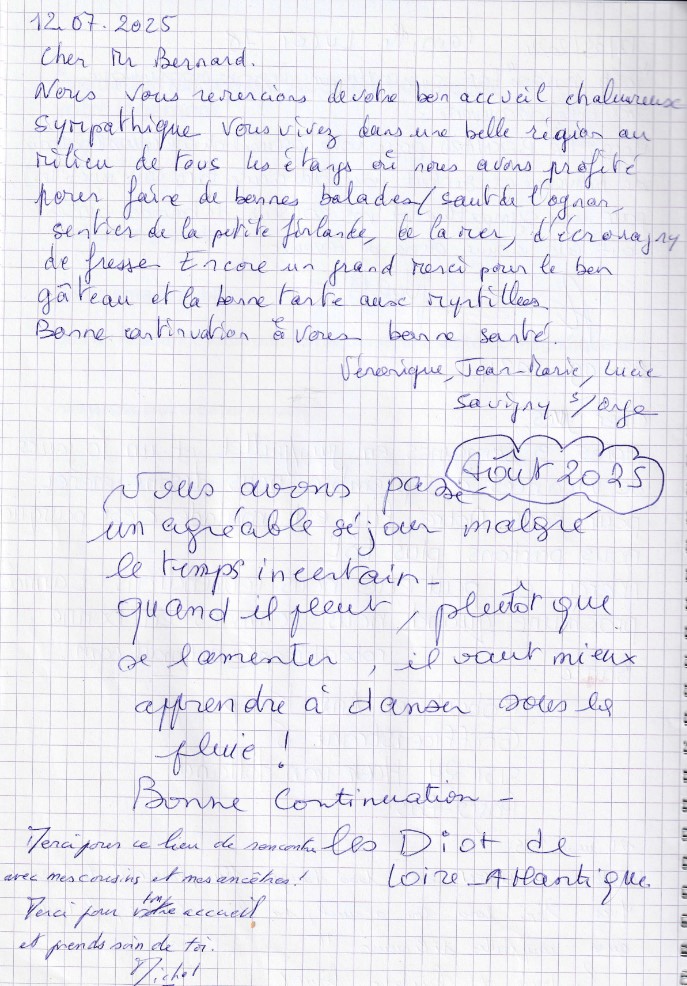 12.07.2025
Cher Mr Bernard.
Nous vous remercions de votre bon accueil chaleureux
sympathique vous vivez dans une belle région au
milieu de tous les étangs où nous avons profité
pour faire de bonnes balades/ saut de l'ognon,
sentier de la petite finlande, be la mer, d'écromagny
de fresse Encore un grand merci pour le bon
gâteau et la bonne tarte aux myrtilles
Bonne continuation à vous bonne santé.
Véronique, Jean-Marie, Lucie
Savigny s/orge
Août 2025
Nous avons passé
un agréable séjour malgré
le temps incertain -
quand il pleut, plutôt que
se lamenter, il vaut mieux
apprendre à danser sous la
pluie !
Bonne Continuation -
les Diot de
Loire-Atlantique.
Merci pour ce lieu de rencontre
avec mes cousins et mes ancêtres !
Merci pour ton accueil
et prends soin de toi.
Michel